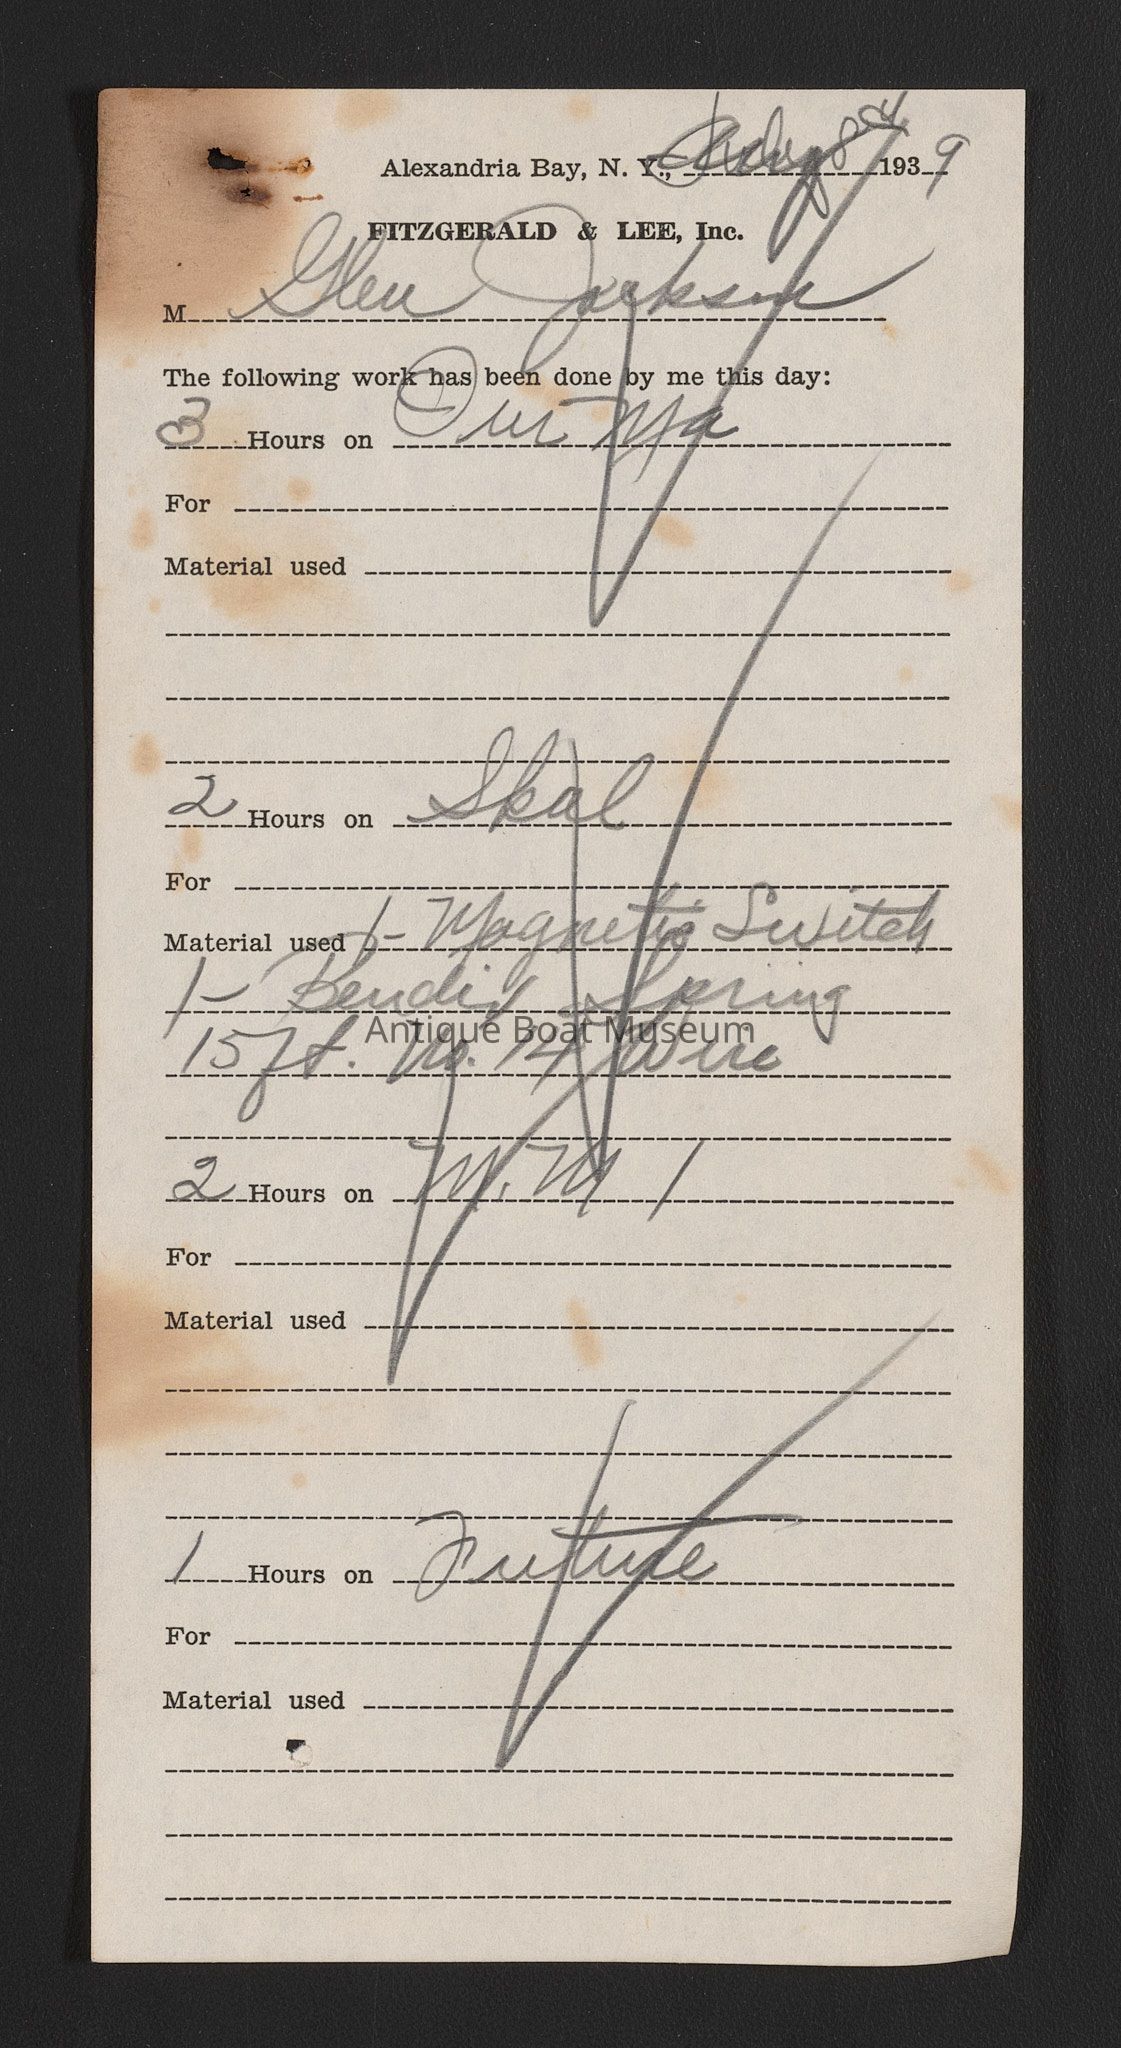 Alexandria Bay, N. Y., July 8th 1939
FITZGERALD & LEE, Inc.
M Glen Jackson
The following work has been done by me this day:
3 Hours on Our Ma
For
Material used
2 Hours on Skal
For
Material used 1- Magnetic Switch
1- Bendix Spring
Antique Boat Museum
15 ft. No. 14 Wire
2 Hours on M. M 1
For
Material used
1 Hours on Future
For
Material used